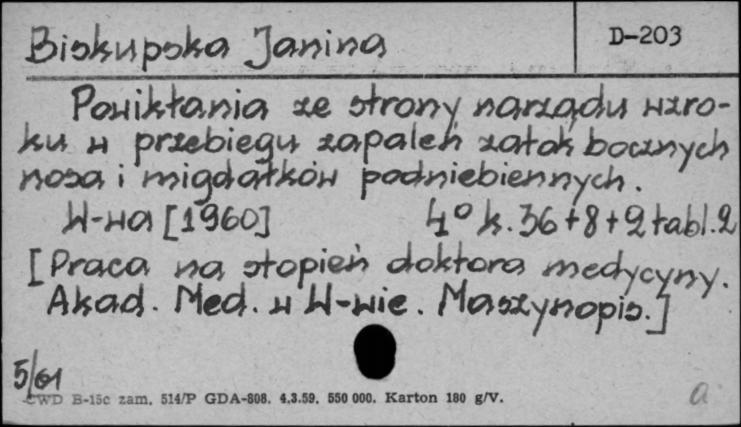 Biskupska Janina
D-203
Powikłania ze strony narządu wzro-
ku w przebiegu zapaleń zatok bocznych
nosa i migdałków podniebiennych.
W-wa [1960] 4° k. 36 + 8 + 2 tabl. 2
[Praca na stopień doktora medycyny.
Akad. Med. w W-wie. Maszynopis.]
5/61
CWD B-15c zam. 514/P GDA-808. 4.3.59. 550 000. Karton 180 g/V.
a